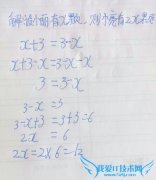 解:设小丽有x颗,则小彦有2x颗
x+3=3-x
x+3-x=3-x-x
3=3-x
3-x=3
3-x+3=3+3=6
2x=6
2x=2×6=12
我爱IT技术网